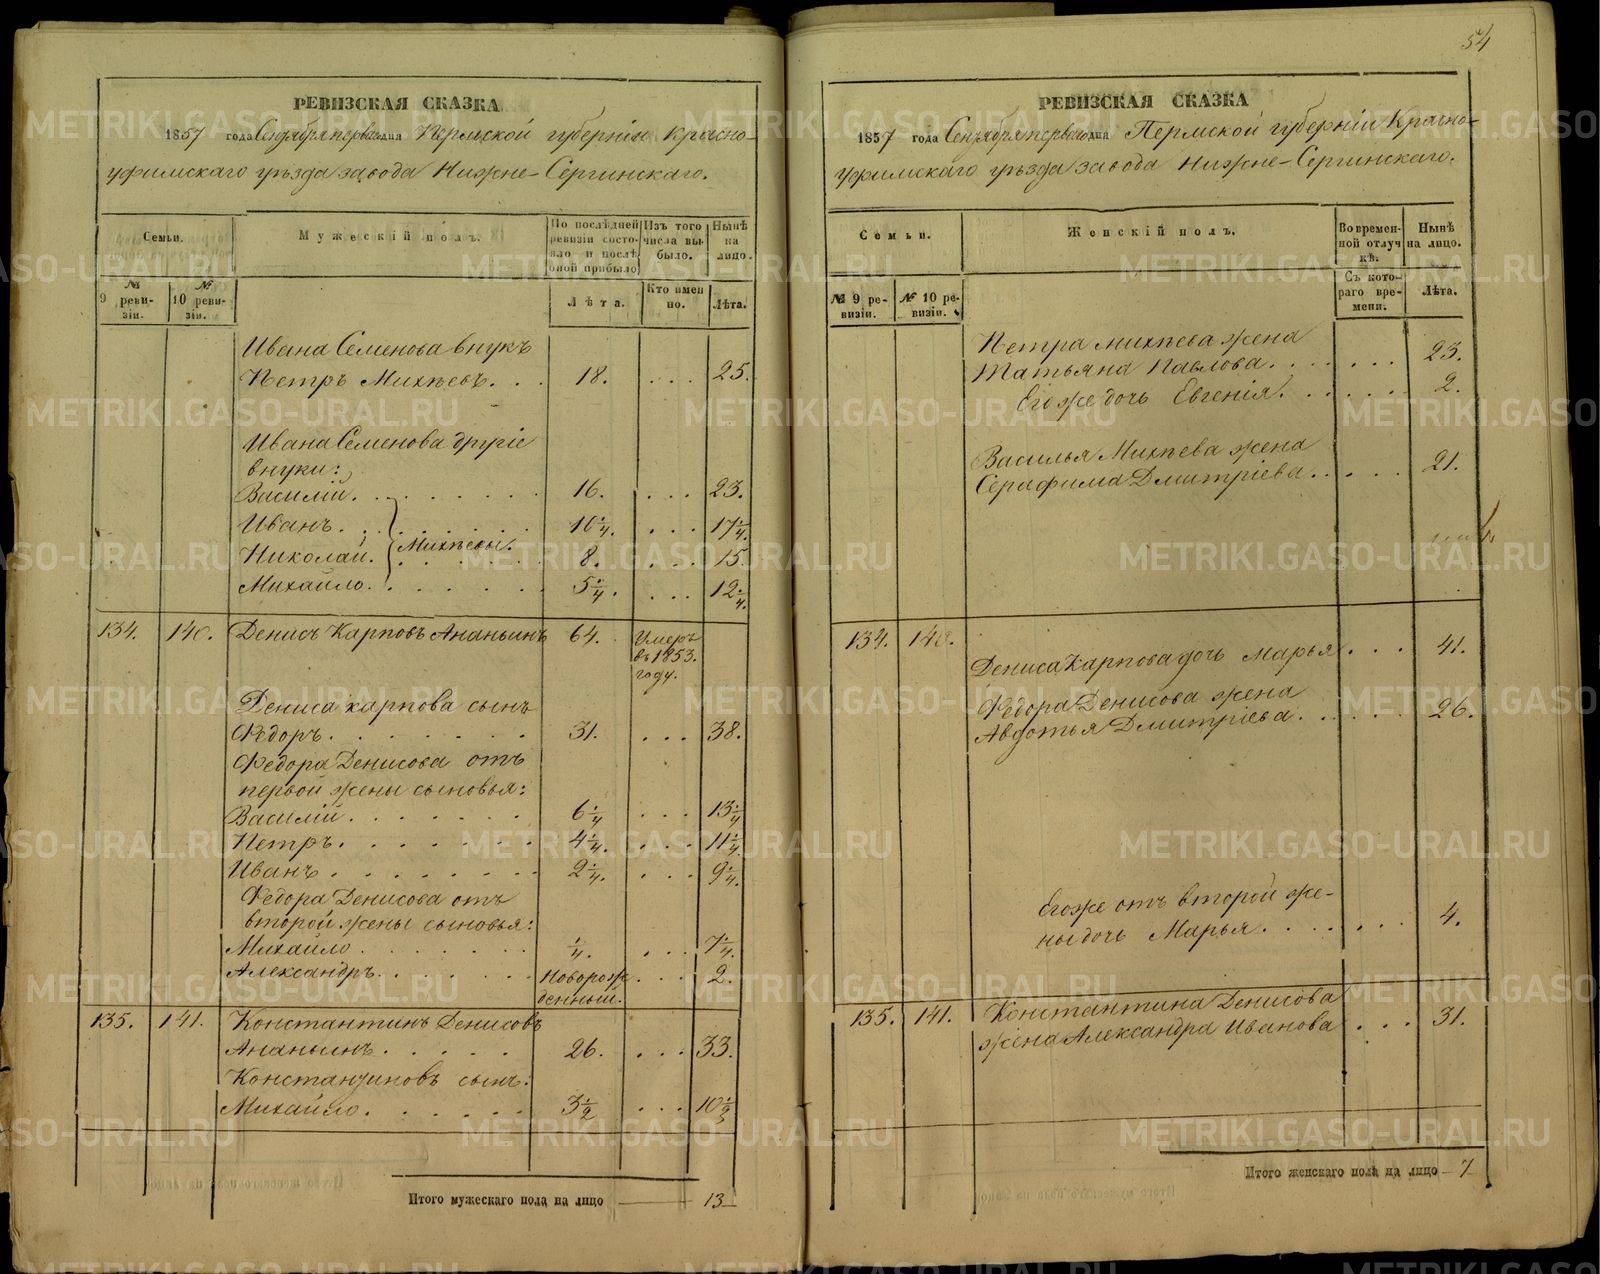 РЕВИЗСКАЯ СКАЗКА
1857 года Сентября перваго дня Пермской губерніи Красно-
уфимскаго уѣзда завода Нижне-Сергинскаго.
Семьи.
Мужескій полъ.
По послѣдней ревизіи состояло и послѣ оной прибыло
Изъ того числа выбыло.
Нынѣ на лицо.
№ 9 ревизіи.
№ 10 ревизіи.
Лѣта.
Кто именно.
Лѣта.
Ивана Семенова внукъ
Петръ Михѣевъ. . . 18. . . . 25.
Ивана Семенова другіе
внуки:
Василій. . . . . . . . 16. . . . 23.
Иванъ. . . . . . . . 10 1/4. . . . 17 1/4.
Николай. Михѣевы. 8. . . . 15.
Михайло. . . . . . . 5 1/4. . . . 12 1/4.
134. 140. Денисъ Карповъ Ананьинъ 64. Умеръ
въ 1853.
году.
Дениса Карпова сынъ
Ѳедоръ. . . . . . . 31. . . . 38.
Ѳедора Денисова отъ
первой жены сыновья:
Василій. . . . . . . 6 1/4 . . . 13 1/4
Петръ. . . . . . . . 4 1/4. . . . 11 1/4.
Иванъ. . . . . . . . 2 1/4. . . . 9 1/4.
Ѳедора Денисова отъ
второй жены сыновья:
Михайло . . . . . . . 1/4. . . . 7 1/4.
Александръ. . . . . . Новорож-
денный. . . . 2.
135. 141. Константинъ Денисовъ
Ананьинъ. . . . . 26. . . . 33.
Константиновъ сынъ:
Михайло. . . . . . 3 1/2 . . . 10
Итого мужескаго пола на лицо 13
54
РЕВИЗСКАЯ СКАЗКА
1857 года Сентября перваго дня Пермской губерніи Красно-
уфимскаго уѣзда завода Нижне-Сергинскаго.
Семьи.
Женскій полъ.
Во временной отлучкѣ.
Нынѣ на лицо.
№ 9 ревизіи.
№ 10 ревизіи.
Съ котораго времени.
Лѣта.
Петра Михѣева жена
Татьяна Павлова. . . . . . . 23.
Его же дочь Евгенія. . . . . . . 2.
Василья Михѣева жена
Серафима Дмитріева. . . . . . 21.
134. 140.
Дениса Карпова дочь Марья . . . 41.
Ѳедора Денисова жена
Авдотья Дмитріева. . . . . . 26.
Его же отъ второй же-
ны дочь Марья. . . . . . . 4.
135. 141. Константина Денисова
жена Александра Иванова . . . 31.
Итого женскаго пола на лицо 7
METRIKI.GASO-URAL.RU